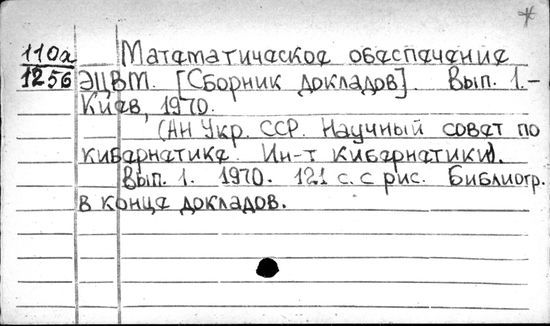 110а Математическое обеспечение
1256 ЭЦВМ. [Сборник докладов]. Вып. 1.-
Киев, 1970.
(АН Укр. ССР. Научный совет по
кибернетике. Ин-т кибернетики).
Вып. 1. 1970. 121 с. с рис. Библиогр.
в конце докладов.